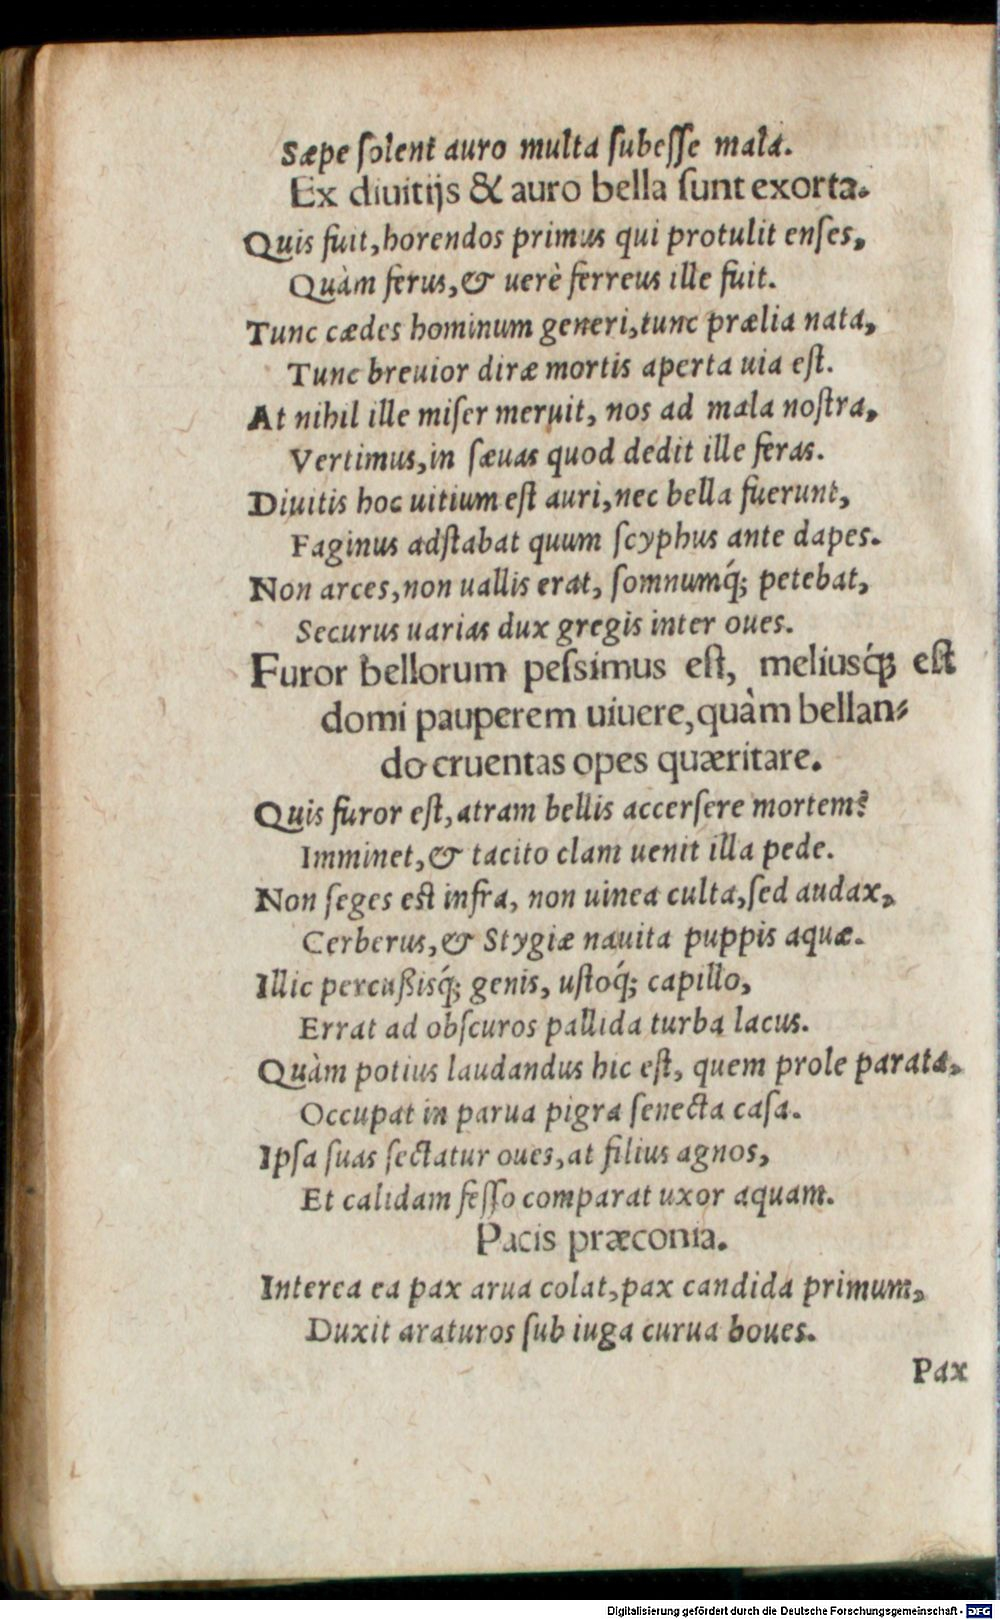 Sæpe ſolent auro multa ſubeſſe mala.
Ex diuitijs & auro bella ſunt exorta.
Quis fuit, horendos primus qui protulit enſes,
Quàm ferus, & uerè ferreus ille fuit.
Tunc cædes hominum generi, tunc prælia nata,
Tunc breuior diræ mortis aperta uia eſt.
At nihil ille miſer meruit, nos ad mala noſtra,
Vertimus, in ſæuas quod dedit ille feras.
Diuitis hoc uitium eſt auri, nec bella fuerunt,
Faginus adſtabat quum ſcyphus ante dapes.
Non arces, non uallis erat, ſomnumq́; petebat,
Securus uarias dux gregis inter oues.
Furor bellorum peſsimus eſt, meliusq́ꝫ eſt
domi pauperem uiuere, quàm bellan⸗
do cruentas opes quæritare.
Quis furor eſt, atram bellis accerſere mortem?
Imminet, & tacito clam uenit illa pede.
Non ſeges eſt infra, non uinea culta, ſed audax,
Cerberus, & Stygiæ nauita puppis aquæ.
Illic percußisq́; genis, uſtoq́; capillo,
Errat ad obſcuros pallida turba lacus.
Quàm potius laudandus hic eſt, quem prole parata,
Occupat in parua pigra ſenecta caſa.
Ipſa ſuas ſectatur oues, at filius agnos,
Et calidam feſſo comparat uxor aquam.
Pacis præconia.
Interea ea pax arua colat, pax candida primum,
Duxit araturos ſub iuga curua boues.
Pax
Digitalisierung gefördert durch die Deutsche Forschungsgemeinschaft - DFG